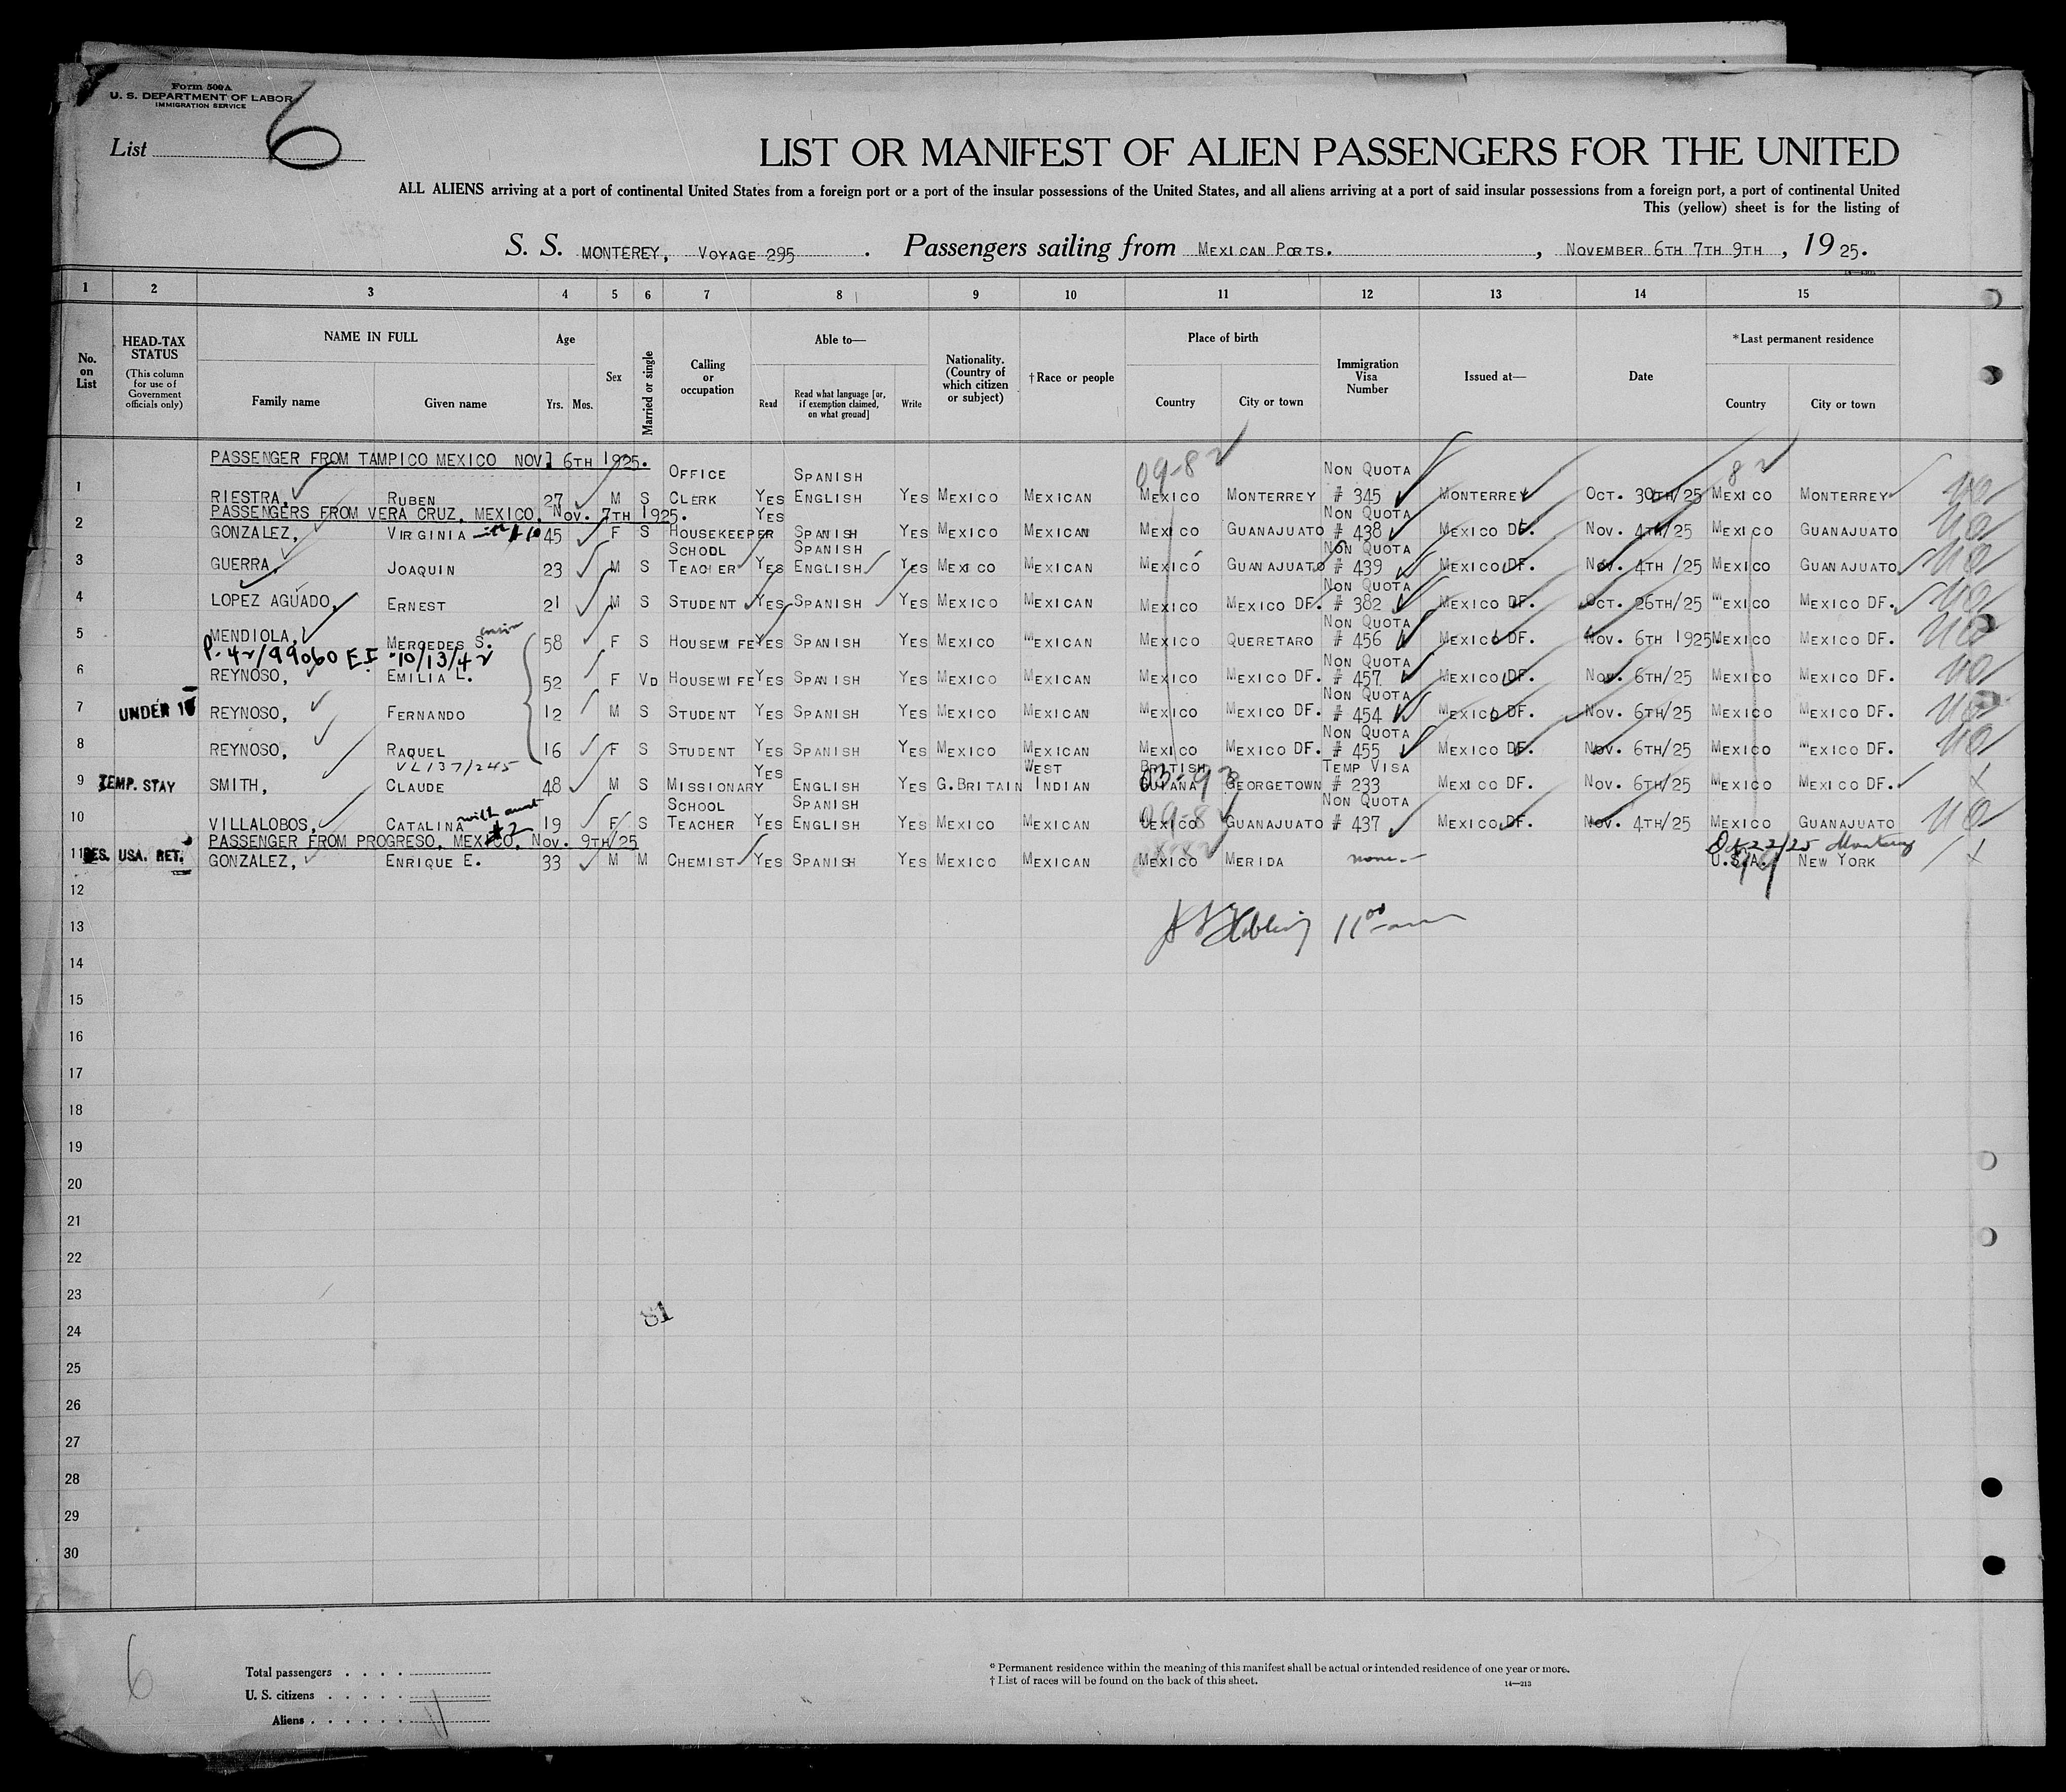 Form 500A
U. S. DEPARTMENT OF LABOR
IMMIGRATION SERVICE
List 6
LIST OR MANIFEST OF ALIEN PASSENGERS FOR THE UNITED
ALL ALIENS arriving at a port of continental United States from a foreign port or a port of the insular possessions of the United States, and all aliens arriving at a port of said insular possessions from a foreign port, a port of continental United
This (yellow) sheet is for the listing of
S. S. MONTEREY, VOYAGE 295. Passengers sailing from MEXICAN PORTS., NOVEMBER 6TH 7TH 9TH, 1925.
1 2 3 4 5 6 7 8 9 10 11 12 13 14 15
No. on List
HEAD-TAX STATUS
(This column for use of Government officials only)
NAME IN FULL
Family name Given name
Age
Yrs. Mos.
Sex
Married or single
Calling or occupation
Able to—
Read Read what language [or, if exemption claimed, on what ground] Write
Nationality. (Country of which citizen or subject)
†Race or people
Place of birth
Country City or town
Immigration Visa Number
Issued at—
Date
*Last permanent residence
Country City or town
PASSENGER FROM TAMPICO MEXICO NOV. 6TH 1925.
09-82 82
1 RIESTRA, RUBEN 27 M S OFFICE CLERK YES SPANISH ENGLISH YES MEXICO MEXICAN MEXICO MONTERREY NON QUOTA # 345 MONTERREY OCT. 30TH/25 MEXICO MONTERREY
PASSENGERS FROM VERA CRUZ, MEXICO, NOV. 7TH 1925.
2 GONZALEZ, VIRGINIA 45 F S HOUSEKEEPER YES SPANISH YES MEXICO MEXICAN MEXICO GUANAJUATO NON QUOTA # 438 MEXICO DF. NOV. 4TH/25 MEXICO GUANAJUATO
3 GUERRA, JOAQUIN 23 M S SCHOOL TEACHER YES SPANISH ENGLISH YES MEXICO MEXICAN MEXICO GUANAJUATO NON QUOTA # 439 MEXICO DF. NOV. 4TH /25 MEXICO GUANAJUATO
4 LOPEZ AGUADO, ERNEST 21 M S STUDENT YES SPANISH YES MEXICO MEXICAN MEXICO MEXICO DF. NON QUOTA # 382 MEXICO DF. OCT. 26TH/25 MEXICO MEXICO DF.
5 MENDIOLA, MERCEDES S. 58 F S HOUSEWIFE YES SPANISH YES MEXICO MEXICAN MEXICO QUERETARO NON QUOTA # 456 MEXICO DF. NOV. 6TH 1925 MEXICO MEXICO DF.
P. 42/99060 E.I. 10/13/42
6 REYNOSO, EMILIA L. 52 F VD HOUSEWIFE YES SPANISH YES MEXICO MEXICAN MEXICO MEXICO DF. NON QUOTA # 457 MEXICO DF. NOV. 6TH/25 MEXICO MEXICO DF.
7 UNDER 16 REYNOSO, FERNANDO 12 M S STUDENT YES SPANISH YES MEXICO MEXICAN MEXICO MEXICO DF. NON QUOTA # 454 MEXICO DF. NOV. 6TH/25 MEXICO MEXICO DF.
8 REYNOSO, RAQUEL 16 F S STUDENT YES SPANISH YES MEXICO MEXICAN MEXICO MEXICO DF. NON QUOTA # 455 MEXICO DF. NOV. 6TH/25 MEXICO MEXICO DF.
VL 137/245
9 TEMP. STAY SMITH, CLAUDE 48 M S MISSIONARY YES ENGLISH YES G.BRITAIN WEST INDIAN BRITISH GUYANA GEORGETOWN TEMP VISA # 233 MEXICO DF. NOV. 6TH/25 MEXICO MEXICO DF.
10 VILLALOBOS, CATALINA with aunt #2 19 F S SCHOOL TEACHER YES SPANISH ENGLISH YES MEXICO MEXICAN MEXICO GUANAJUATO NON QUOTA # 437 MEXICO DF. NOV. 4TH/25 MEXICO GUANAJUATO
PASSENGER FROM PROGRESO, MEXICO, NOV. 9TH/25
11 RES. USA. RET. GONZALEZ, ENRIQUE E. 33 M M CHEMIST YES SPANISH YES MEXICO MEXICAN MEXICO MERIDA none.— Oct 22/25 Monterey U.S.A. NEW YORK
12
13 11 00 am
14
15
16
17
18
19
20
21
22
23
81
24
25
26
27
28
29
30
6
Total passengers
U. S. citizens
Aliens 11
* Permanent residence within the meaning of this manifest shall be actual or intended residence of one year or more.
† List of races will be found on the back of this sheet.
14—213